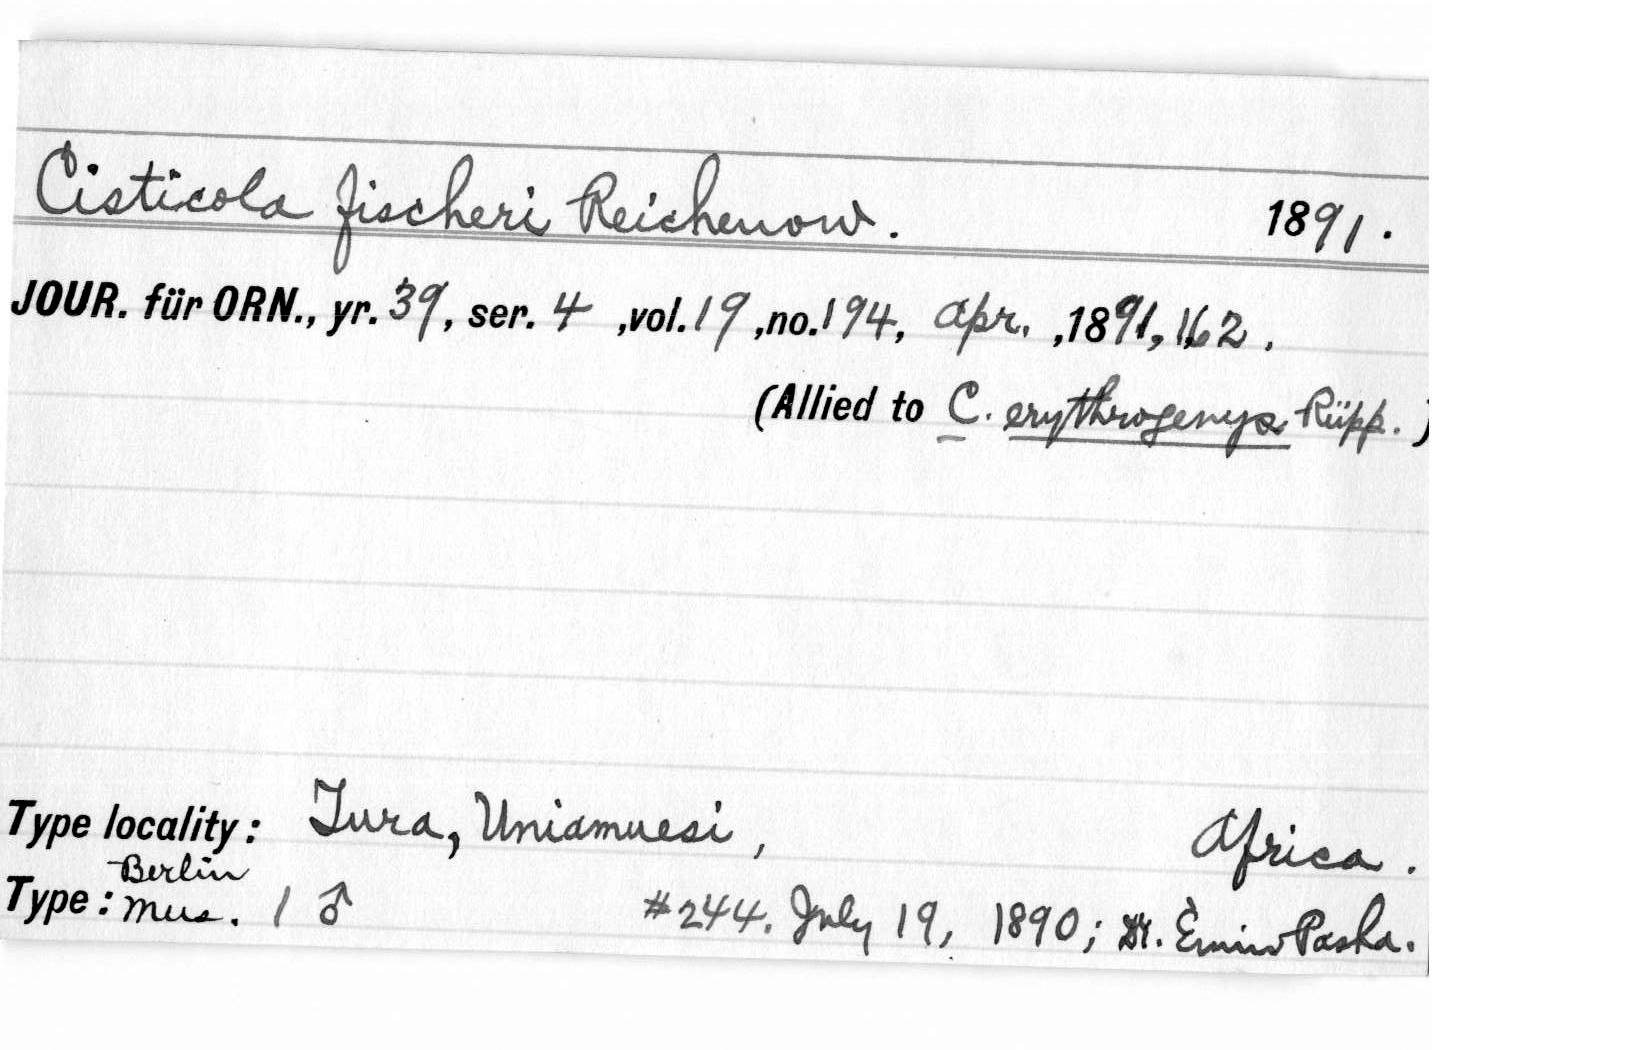 Cisticola fischeri Reichenow. 1891.
JOUR. für ORN., yr. 39, ser. 4 ,vol. 19 ,no. 194, Apr. ,1891, 162.
(Allied to C. erythrogenys Rüpp. )
Type locality: Tura, Uniamuesi, Africa.
Berlin
Type: Mus. 1 ♂ #244. July 19, 1890; Dr. Emin Pasha.